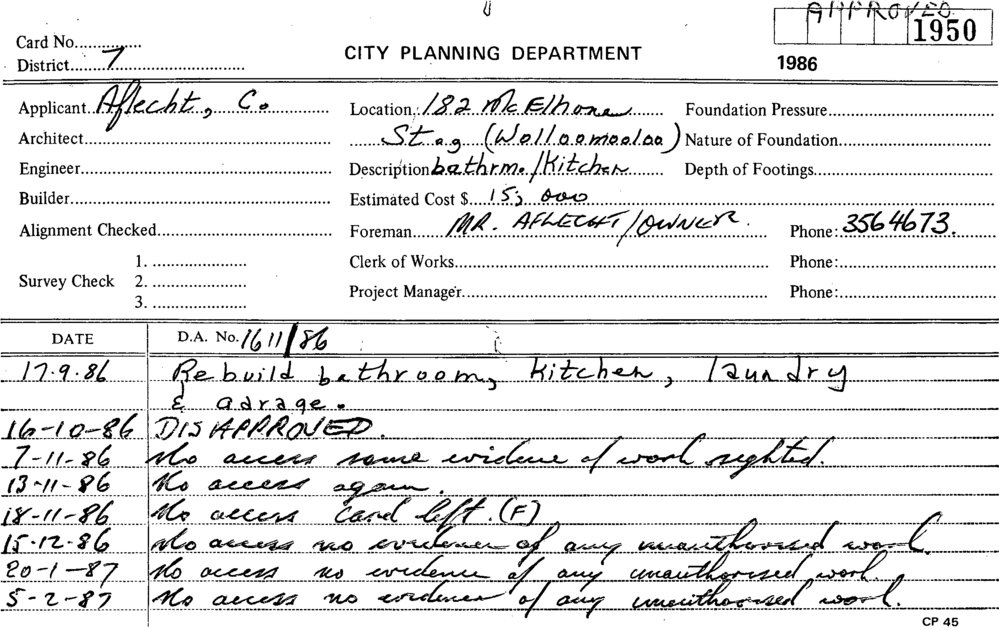 APPROVED
1950
1986
Card No...............
District....7..............................
CITY PLANNING DEPARTMENT
Applicant. Aflecht, Co
Architect
Engineer
Builder
Alignment Checked
Survey Check
1.
2.
3.
Location: 182 McElhone
St. (Wolloomooloo)
Description bathrm. / Kitchen
Estimated Cost $ 15, 000
Foreman MR. AFLECHT / OWNER.
Clerk of Works
Project Manager
Foundation Pressure
Nature of Foundation
Depth of Footings
Phone: 3564673.
Phone:
Phone:
DATE D.A. No. 1611/86
17.9.86 Rebuild bathroom, kitchen, laundry
& garage.
16-10-86 DISAPPROVED.
7-11-86 No access some evidence of work sighted.
13-11-86 No access again.
18-11-86 No access card left. (F)
15-12-86 No access no evidence of any unauthorised work.
20-1-87 No access no evidence of any unauthorised work.
5-2-87 No access no evidence of any unauthorised work.
CP 45